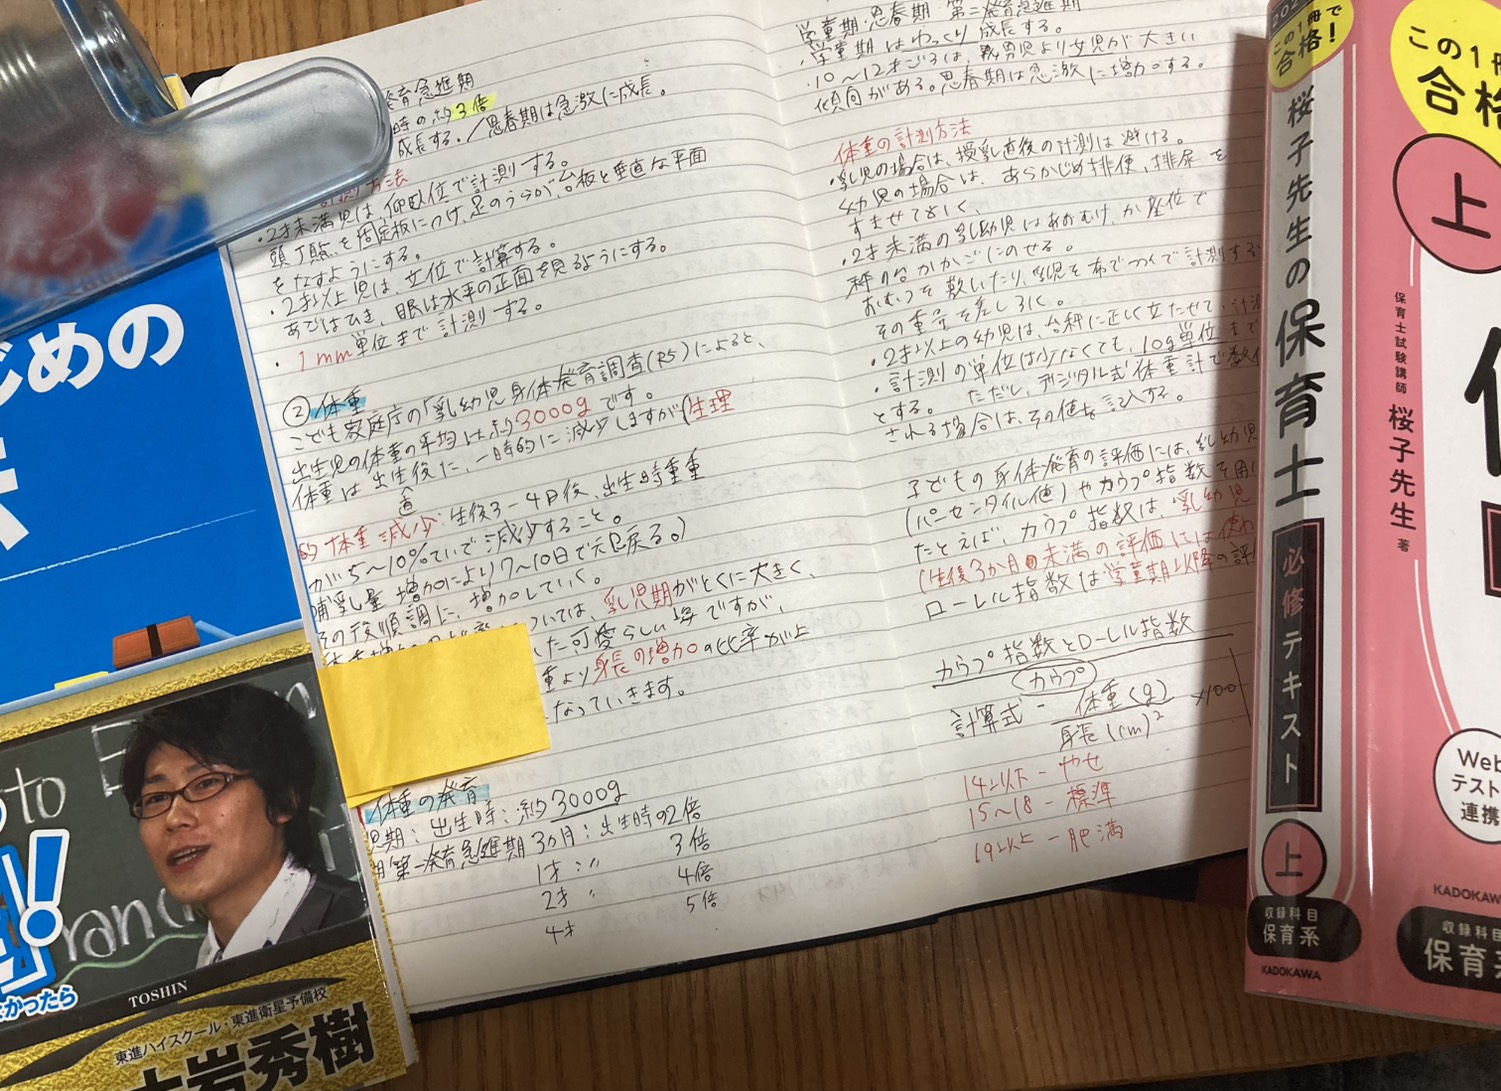 発育急進期
時の約3倍
成長する。／思春期は急激に成長。
方法
・2才未満児は、仰臥位で計測する。
頭頂点を固定板につけ、足のうらが、台板と垂直な平面
をなすようにする。
・2才以上児は、立位で計算する。
あごはひき、眼は水平の正面を見るようにする。
・1mm単位まで計測する。
② 体重
こども家庭庁の「乳幼児身体発育調査(R5)によると、
出生児の体重の平均は約3000gです。
体重は出生後に、一時的に減少しますが(生理
的体重減少：生後3〜4日後、出生時体重
が5〜10%ていで減少すること。
哺乳量増加により7〜10日で元に戻る。)
その後順調に、増加していく。
ついては、乳児期がとくに大きく、
した可愛らしい姿ですが、
重より身長の増加の比率が上
なっていきます。
体重の発育
児期：出生時：約3000g
期 第一発育急進期 3カ月：出生時の2倍
1才：〃 3倍
2才 〃 4倍
4才 5倍
学童期・思春期・第二発育急進期
・学童期はゆっくり成長する。
・10〜12才ごろは、男児より女児が大きい
傾向がある。思春期は急激に増加する。
体重の計測方法
・乳児の場合は、授乳直後の計測は避ける。
幼児の場合は、あらかじめ排便、排尿を
すませておく、
・2才未満の乳幼児はあおむけ、か座位で
秤の台かかごにのせる。
おむつを敷いたり、乳児を布でつつんで計測する
その重量を差し引く。
・2才以上の幼児は、台秤に正しく立たせて、計測
・計測の単位は少なくても、10g単位まで
とする。ただし、デジタル式体重計で数値
される場合は、その値を記入する。
子どもの身体発育の評価には、乳幼児
(パーセンタイル値)やカウプ指数を用い
たとえば、カウプ指数は、乳幼児
(生後3か月未満の評価には使わ
ローレル指数は学童期以降の評
カウプ指数とローレル指数
(カウプ)
計算式 - 体重(g)
身長(cm)² ×100
14以下 - やせ
15〜18 - 標準
19以上 - 肥満
じめの
TOSHIN
東進ハイスクール・東進衛星予備校
岩秀樹
この1冊で
合格！
桜子先生の保育士
必修テキスト
上
収録科目
保育系
KADOKAWA
この1冊
合格
上
保育士試験講師 桜子先生 著
Web
テスト
連携
KADOKAWA
収録科目
保育系